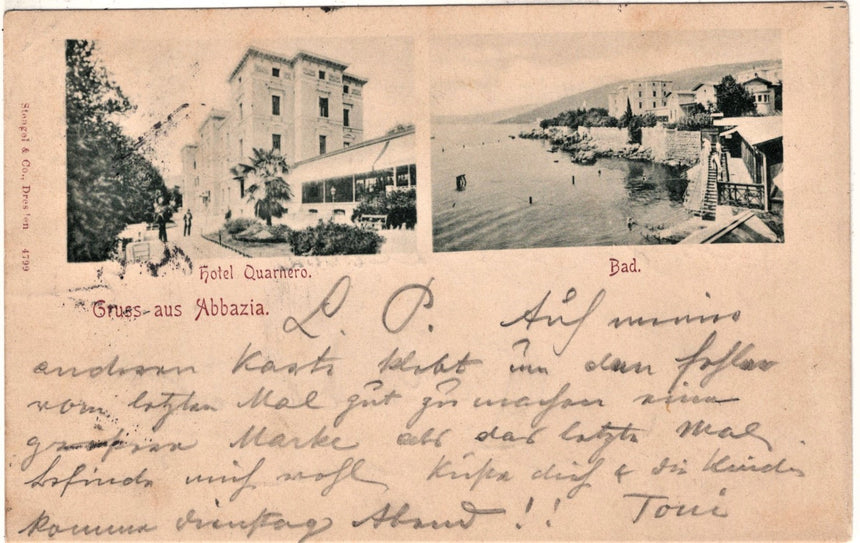 Stengel & Co., Dresden 4799
Hotel Quarnero.
Bad.
Gruss aus Abbazia.
L. P. Auf meine
anderen Karte klebt um den Fehler
vom letzten Mal gut zu machen eine
größere Marke als das letzte Mal.
befinde mich wohl Küße dich & die Kinder
komme Dienstag Abend!! Toni